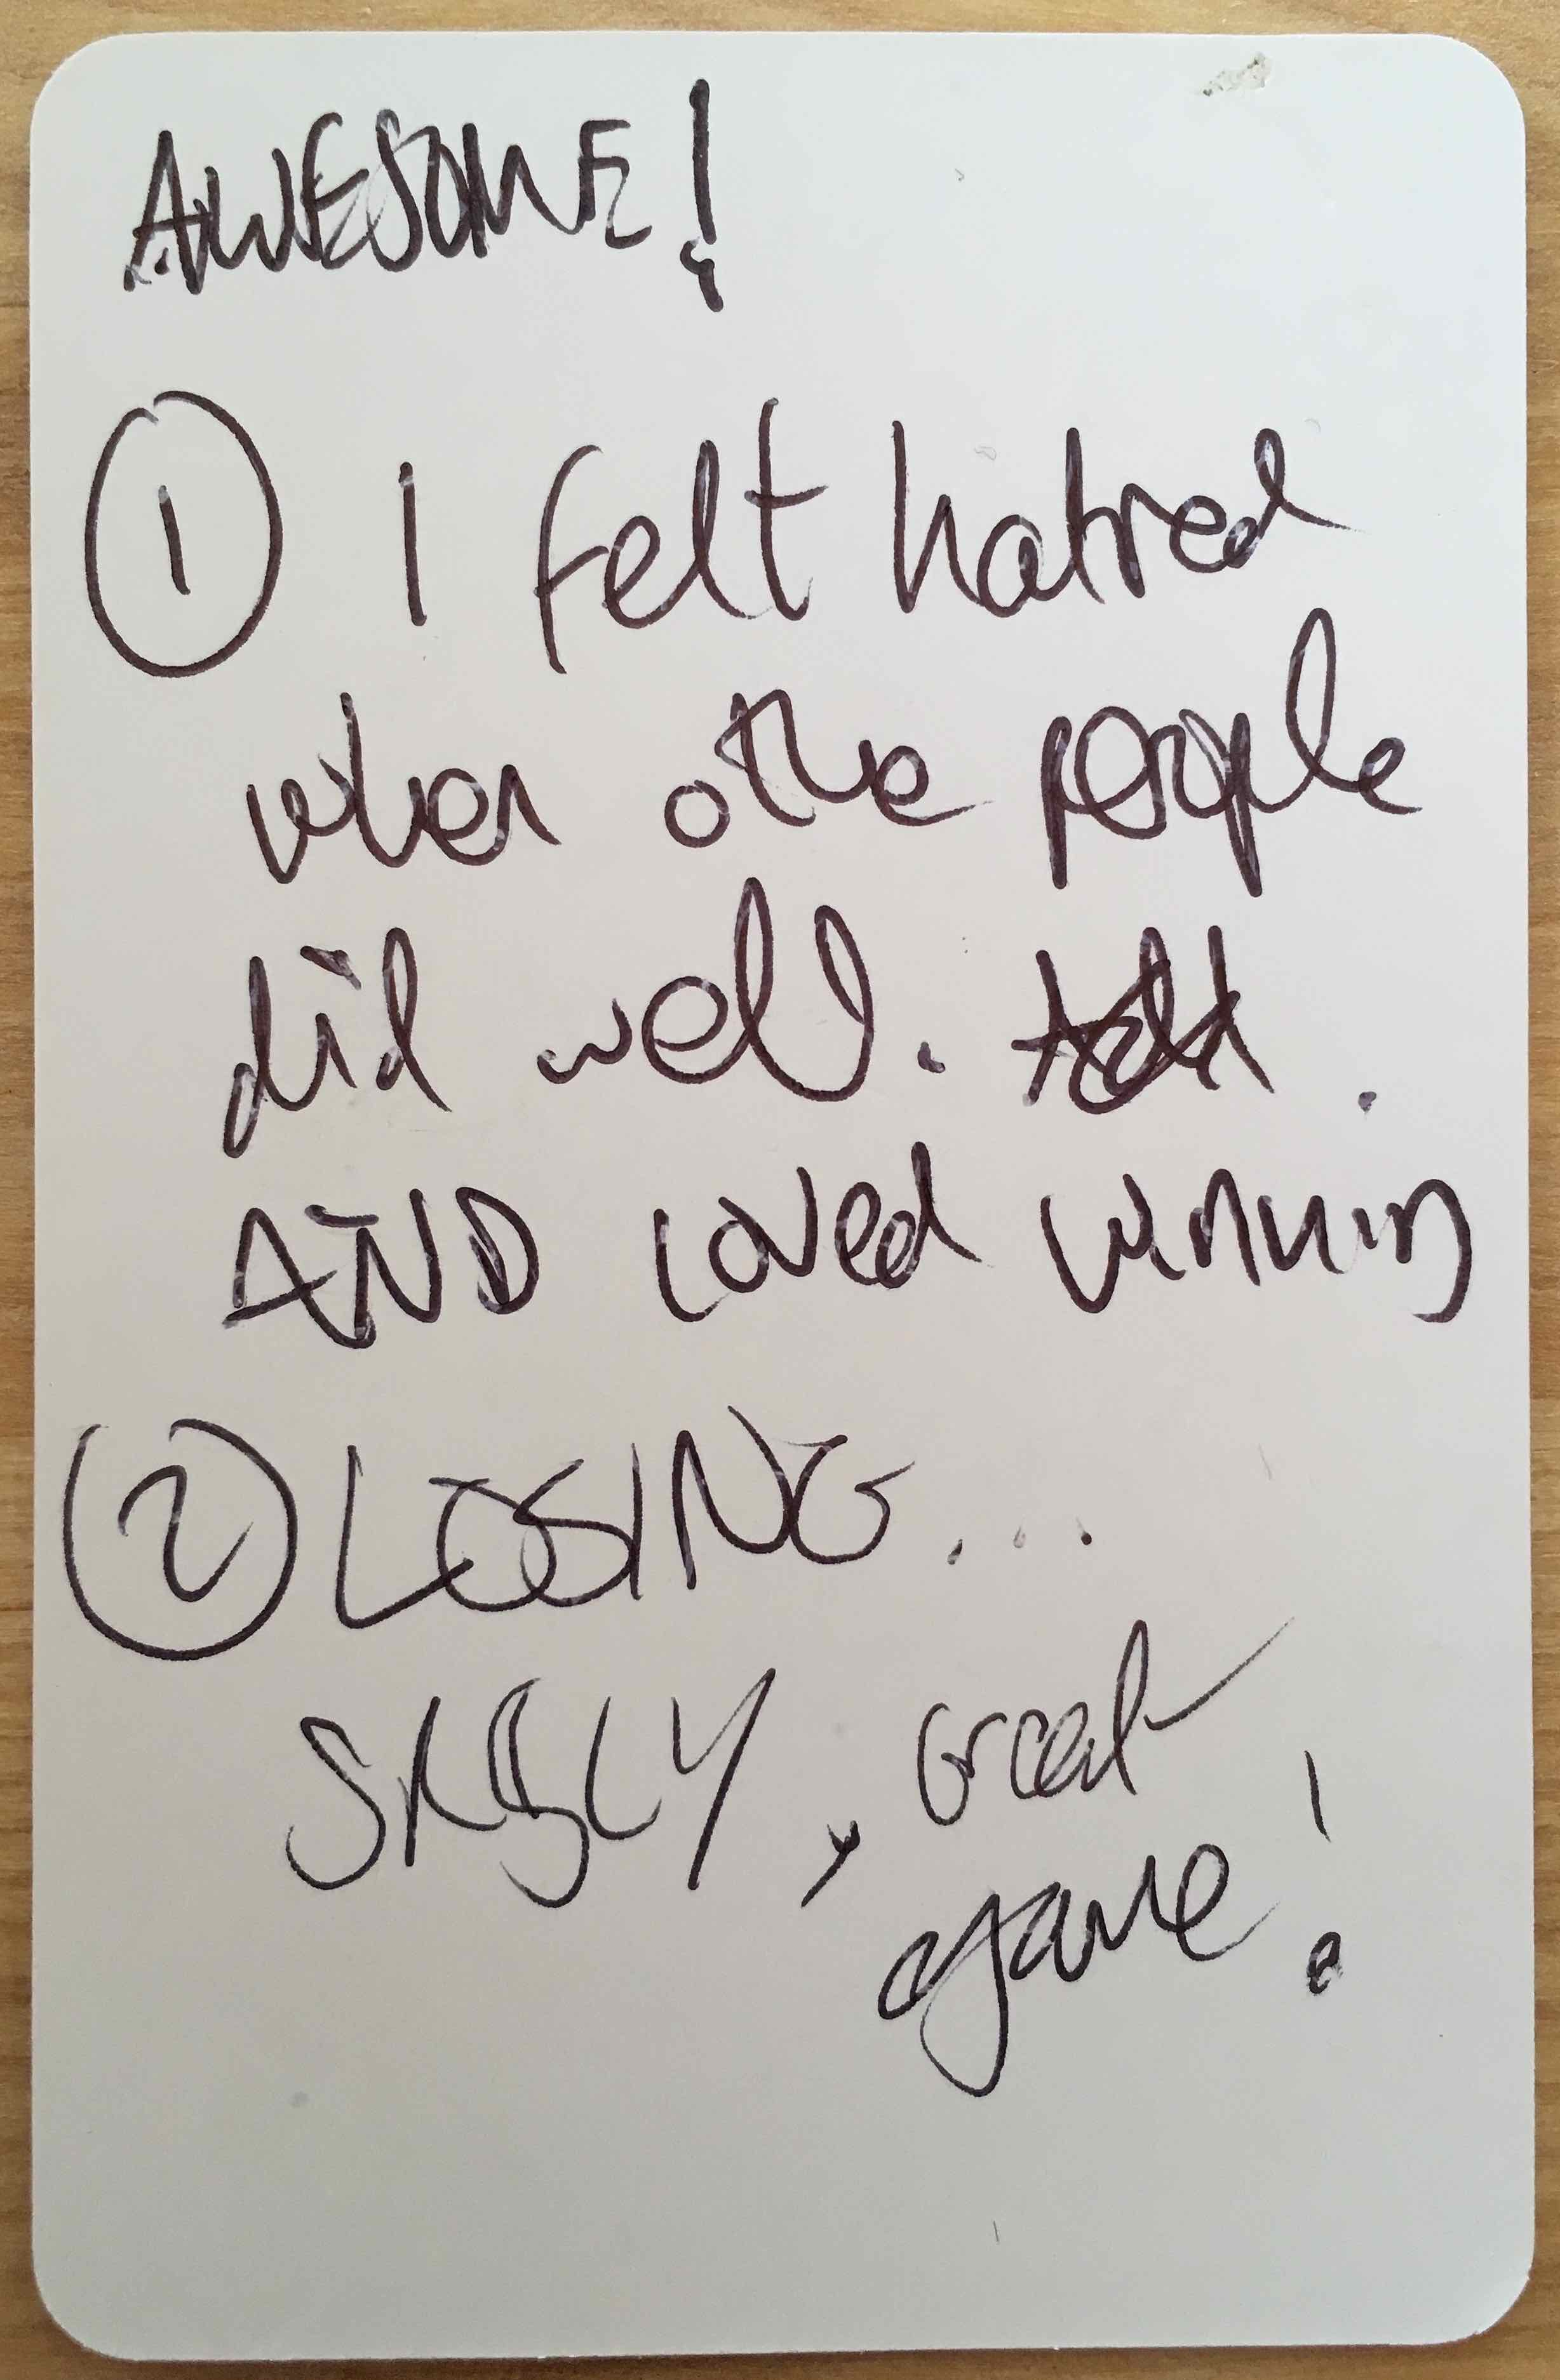 AWESOME!
① I felt hatred
when othe people
did well.
AND loved winning
② LOSING...
great
game!